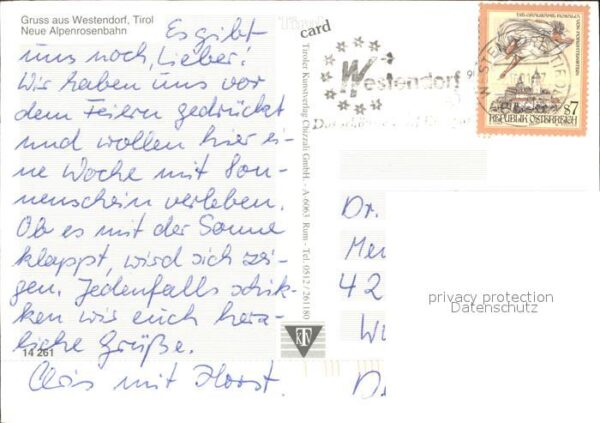 Gruss aus Westendorf, Tirol
Neue Alpenrosenbahn
Es gibt
uns noch, Lieber!
Wir haben uns vor
dem Feiern gedrückt
und wollen hier ei-
ne Woche mit Son-
nenschein verleben.
Ob es mit der Sonne
klappt, wird sich zei-
gen. Jedenfalls schik-
ken wir euch herz-
liche Grüße.
Chris mit Horst.
14 261
Tirol
card
Tiroler Kunstverlag Chizzali GmbH. - A-6063 Rum - Tel. 0512/261180
KTV
Westendorf
S7
REPUBLIK ÖSTERREICH
Dr.
42
privacy protection
Datenschutz